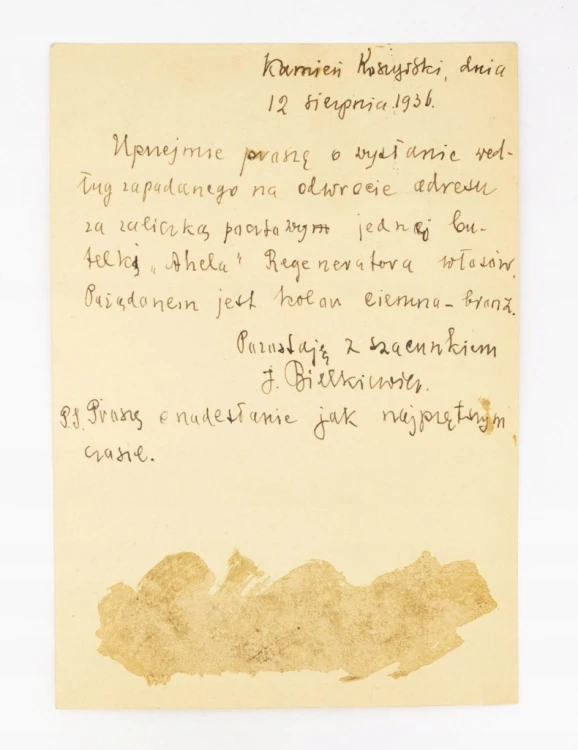 Kamień Koszyrski, dnia
12 sierpnia 1936.
Uprzejmie proszę o wysłanie wed-
ług zapodanego na odwrocie adresu
za zaliczką pocztowym jednej bu-
telkę „Ahela" Regeneratora włosów.
Pożądanem jest kolor ciemno-bronz.
Pozostaję z szacunkiem
J. Bielkiewicz.
P.S. Proszę o nadesłanie jak najprętszym
czasie.